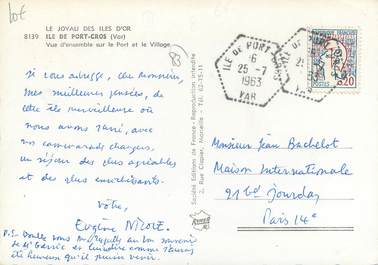 Lot
LE JOYAU DES ILES D'OR
8139 ILE DE PORT-CROS (Var)
Vue d'ensemble sur le Port et le Village
83
Je vous adresse, cher Monsieur,
mes meilleures pensées, de
cette île merveilleuse où
nous avons passé, avec
nos camarades
un séjour des plus agréables
et des plus enrichissants.
Vôtre,
Eugène
P.S.
vous au bon souvenir
de Mr et lui dire comme j'aurais
été heureux qu'il puisse venir.
Société Editions de France - Reproduction interdite
2, Rue Clapier, Marseille - Tél. 62-15-11
ILE DE PORT-CROS
6
25-7
1963
VAR
REPUBLIQUE FRANCAISE
POSTES
0,20
Monsieur Jean Bachelot
Maison Internationale
21 bd Jourdan
Paris 14e